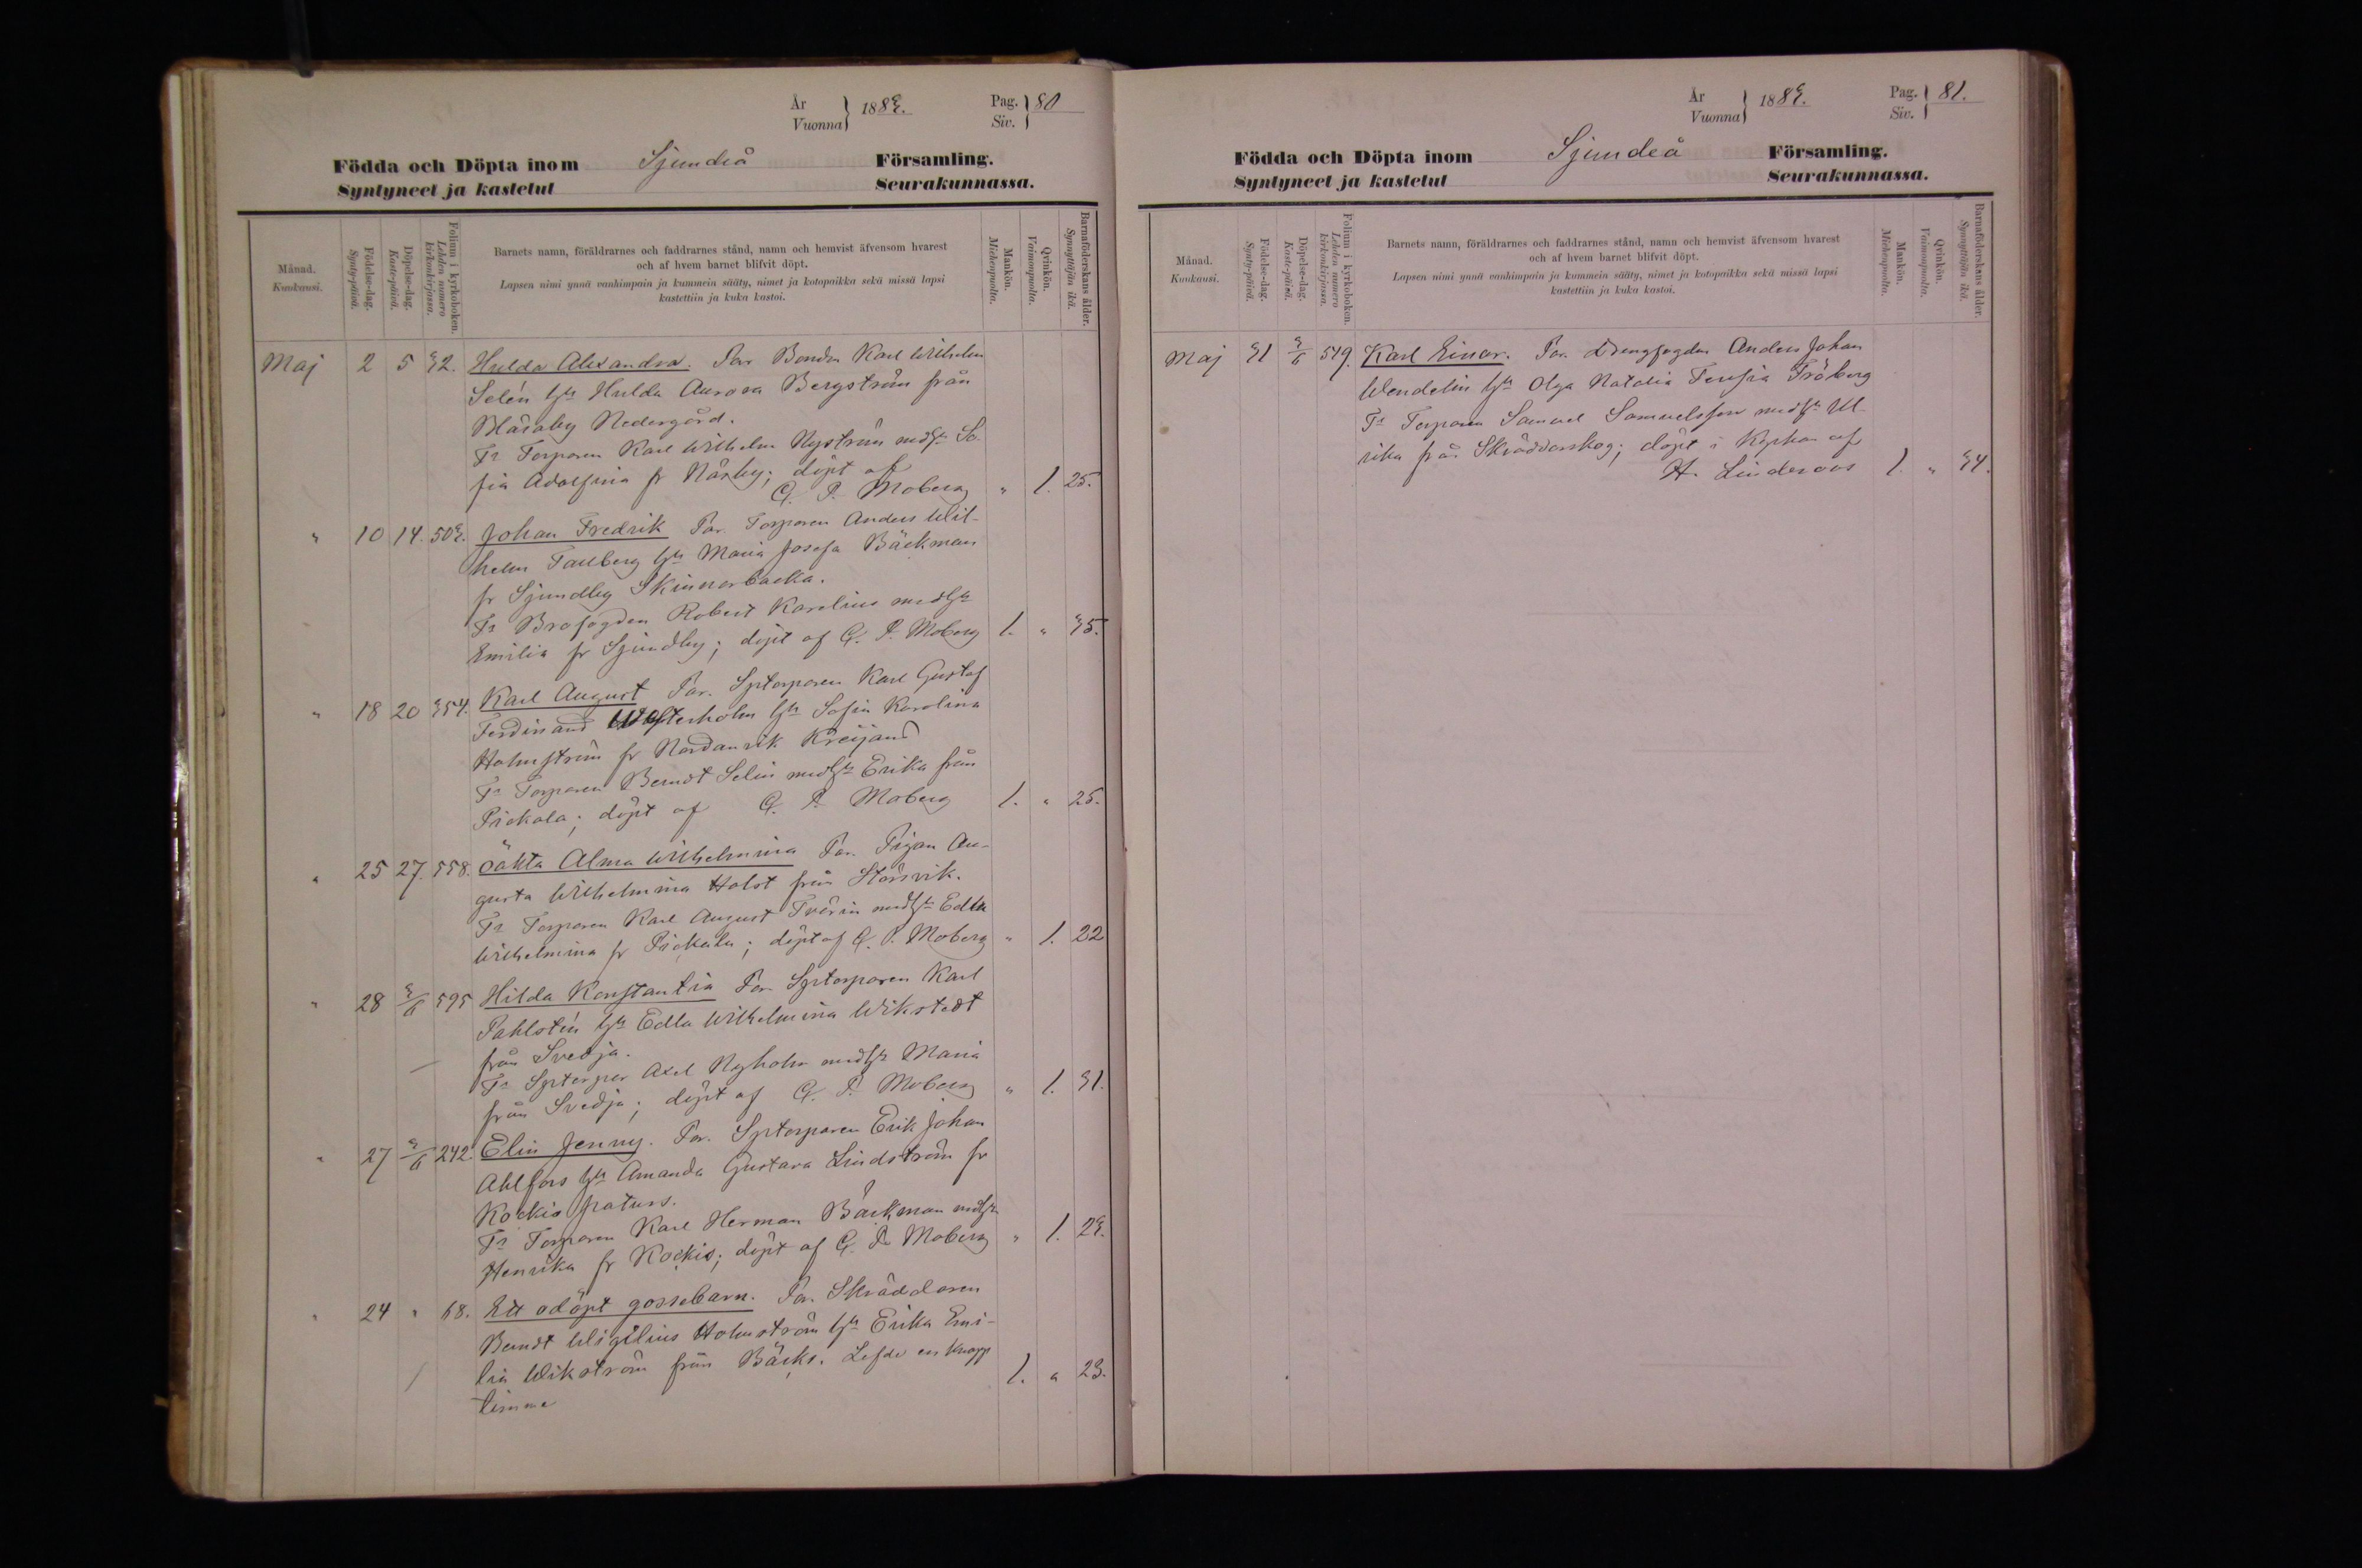 År Vuonna } 1883. Pag. Siv. } 80
Födda och Döpta inom Sjundeå Församling.
Syntyneet ja kastetut Seurakunnassa.
Månad. Kuukausi.
Födelse-dag. Synty-päivä.
Döpelse-dag. Kaste-päivä.
Folium i kyrkoboken. Lehden numero kirkonkirjassa.
Barnets namn, föräldrarnes och faddrarnes stånd, namn och hemvist äfvensom hvarest
och af hvem barnet blifvit döpt.
Lapsen nimi ynnä vanhimpain ja kummein sääty, nimet ja kotopaikka sekä missä lapsi
kastettiin ja kuka kastoi.
Mankön. Miehenpuolta.
Qvinkön. Vaimonpuolta.
Barnaföderskans ålder. Synnyttäjän ikä.
Maj 2 5 32. Hulda Alexandra. För. Bonden Karl Wilhelm
Selén hu Hulda Aurora Bergström från
Nedergård.
Fr Torparen Karl Wilhelm Nyström med hu So-
fia Adolfina fr Närby; döpt af
G. P. Moberg " 1. 25.
" 10 14. 503. Johan Fredrik För. Torparen Anders Wil-
helm Tallberg hu Maria Josefa Bäckman
fr Sjundby Skinnarbacka.
Fr Brofogden Robert Karelius med hu
Emilia fr Sjundby; döpt af G. P. Moberg 1. " 35.
" 18 20 354. Karl August För. Sptorparen Karl Gustaf
Ferdinand Westerholm hu Sofia Karolina
Holmström fr Nordanvik
Fr Torparen Berndt Selin med hu Erika från
Pickala; döpt af G. P. Moberg 1. " 25.
" 25 27. 558. Oäkta Alma Wilhelmina För. Pigan Au-
gusta Wilhelmina Holst från Störsvik.
Fr Torparen Karl August med hu Edla
Wilhelmina fr Pickala; döpt af G. P. Moberg " 1. 22
" 28 3/6 595 Hilda Konstantia För. Sptorparen Karl
Pahlstén hu Edla Wilhelmina Wikstedt
från Svedja.
Fr Sptorpar Axel Nyholm med hu Maria
från Svedja; döpt af G. P. Moberg " 1. 31.
" 27 3/6 242. Elin Jenny. För. Sptorparen Erik Johan
Ahlfors hu Amanda Gustava Lindström fr
Kockis
Fr Torparen Karl Herman Bäckman med hu
Henrika fr Kockis; döpt af G. P. Moberg " 1. 23.
" 24 " 68. Ett odöpt gossebarn. För. Skräddaren
Berndt Wigilius Holmström hu Erika Emi-
lia Wikström från Bäcks. Lefde en knapp
timme 1. " 23.
År Vuonna } 1883. Pag. Siv. } 81.
Födda och Döpta inom Sjundeå Församling.
Syntyneet ja kastetut Seurakunnassa.
Månad. Kuukausi.
Födelse-dag. Synty-päivä.
Döpelse-dag. Kaste-päivä.
Folium i kyrkoboken. Lehden numero kirkonkirjassa.
Barnets namn, föräldrarnes och faddrarnes stånd, namn och hemvist äfvensom hvarest
och af hvem barnet blifvit döpt.
Lapsen nimi ynnä vanhimpain ja kummein sääty, nimet ja kotopaikka sekä missä lapsi
kastettiin ja kuka kastoi.
Mankön. Miehenpuolta.
Qvinkön. Vaimonpuolta.
Barnaföderskans ålder. Synnyttäjän ikä.
Maj 31 3/6 549. Karl Einar. För. Drengfogden Anders Johan
Wendelin hu Olga Natalia Teresia Fröberg
Fr Torparen Samuel Samuelsson med hu Ul-
rika från Skräddarskog; döpt i Kyrkan af
H. Linderoos 1. " 34.